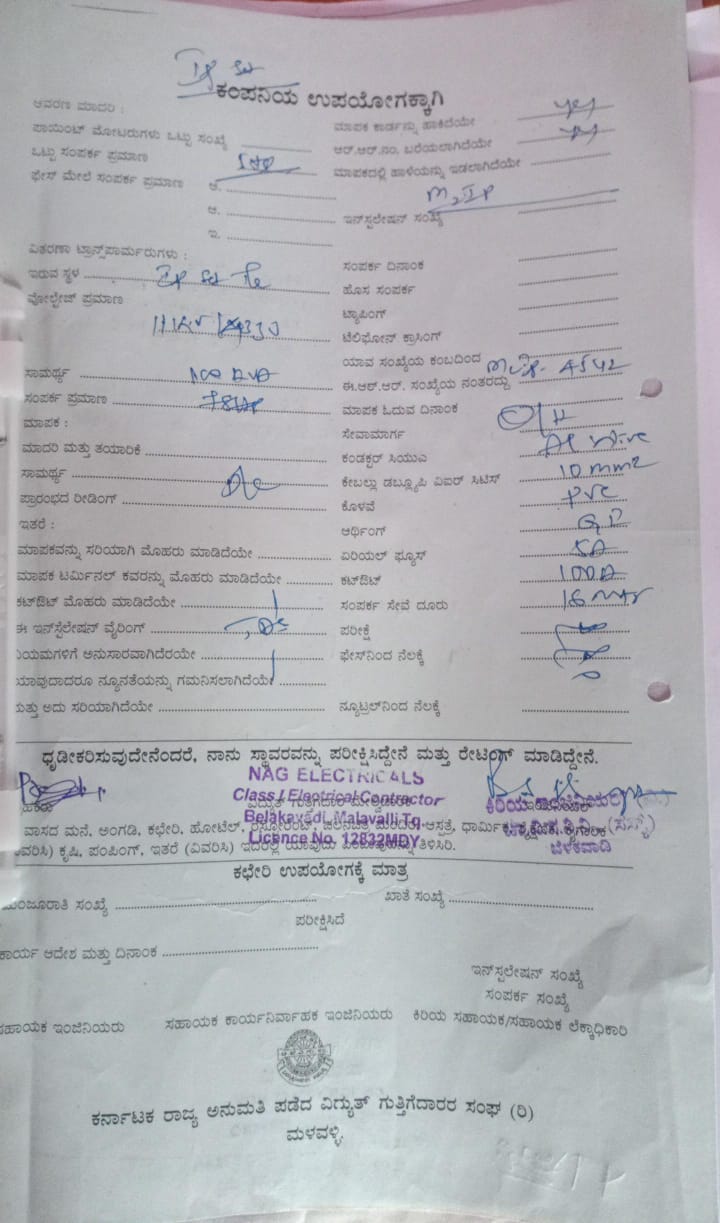 IP Set
ಕಂಪನಿಯ ಉಪಯೋಗಕ್ಕಾಗಿ
ಆವರಣ ಮಾದರಿ :
ಮಾಪಕ ಕಾರ್ಡನ್ನು ಹಾಕಿದೆಯೇ yes
ಪಾಯಿಂಟ್ ಮೋಟರುಗಳು ಒಟ್ಟು ಸಂಖ್ಯೆ
ಆರ್.ಆರ್.ನಂ. ಬರೆಯಲಾಗಿದೆಯೇ yes
ಒಟ್ಟು ಸಂಪರ್ಕ ಪ್ರಮಾಣ 5HP
ಮಾಪಕದಲ್ಲಿ ಹಾಳೆಯನ್ನು ಇಡಲಾಗಿದೆಯೇ
ಫೇಸ್ ಮೇಲೆ ಸಂಪರ್ಕ ಪ್ರಮಾಣ ಆ.
ಆ.
ಇನ್‌ಸ್ಟಲೇಷನ್ ಸಂಖ್ಯೆ
ಇ.
ವಿತರಣಾ ಟ್ರಾನ್ಸ್‌ಪಾರ್ಮರುಗಳು :
ಇರುವ ಸ್ಥಳ IP Set
ಸಂಪರ್ಕ ದಿನಾಂಕ
ವೋಲ್ಟೇಜ್ ಪ್ರಮಾಣ
ಹೊಸ ಸಂಪರ್ಕ
ಟ್ಯಾಪಿಂಗ್
11KV
ಟೆಲಿಫೋನ್ ಕ್ರಾಸಿಂಗ್
ಯಾವ ಸಂಖ್ಯೆಯ ಕಂಬದಿಂದ
ಸಾಮರ್ಥ್ಯ 100 KVA
ಈ.ಆರ್.ಆರ್. ಸಂಖ್ಯೆಯ ನಂತರದ್ದು A542
ಸಂಪರ್ಕ ಪ್ರಮಾಣ 78HP
ಮಾಪಕ ಓದುವ ದಿನಾಂಕ
ಮಾಪಕ :
ಸೇವಾಮಾರ್ಗ O/H
ಮಾದರಿ ಮತ್ತು ತಯಾರಿಕೆ
ಕಂಡಕ್ಟರ್ ಸಿಯುಎ Al wire
ಸಾಮರ್ಥ್ಯ
ಕೇಬಲ್ಲು ಡಬ್ಲ್ಯೂಪಿ ವಿಐರ್ ಸಿಟಿಸ್ 10 mm2
ಪ್ರಾರಂಭದ ರೀಡಿಂಗ್
ಕೊಳವೆ PVC
ಇತರೆ :
ಆರ್ಥಿಂಗ್ G.I
ಮಾಪಕವನ್ನು ಸರಿಯಾಗಿ ಮೊಹರು ಮಾಡಿದೆಯೇ
ಏರಿಯಲ್ ಫ್ಯೂಸ್ 5A
ಮಾಪಕ ಟರ್ಮಿನಲ್ ಕವರನ್ನು ಮೊಹರು ಮಾಡಿದೆಯೇ
ಕಟ್‌ಔಟ್ 100A
ಕಟ್‌ಔಟ್ ಮೊಹರು ಮಾಡಿದೆಯೇ
ಸಂಪರ್ಕ ಸೇವೆ ದೂರು
ಈ ಇನ್‌ಸ್ಟೆಲೇಷನ್ ವೈರಿಂಗ್
ಪರೀಕ್ಷೆ
ನಿಯಮಗಳಿಗೆ ಅನುಸಾರವಾಗಿದೆರಯೇ
ಫೇಸ್‌ನಿಂದ ನೆಲಕ್ಕೆ
ಯಾವುದಾದರೂ ನ್ಯೂನತೆಯನ್ನು ಗಮನಿಸಲಾಗಿದೆಯೇ
ಮತ್ತು ಅದು ಸರಿಯಾಗಿದೆಯೇ
ನ್ಯೂಟ್ರಲ್‌ನಿಂದ ನೆಲಕ್ಕೆ
ಧೃಡೀಕರಿಸುವುದೇನೆಂದರೆ, ನಾನು ಸ್ಥಾವರವನ್ನು ಪರೀಕ್ಷಿಸಿದ್ದೇನೆ ಮತ್ತು ರೇಟಿಂಗ್ ಮಾಡಿದ್ದೇನೆ.
NAG ELECTRICALS
Class I Electrical Contractor
Belakavadi, Malavalli Tq.
Licence No. 12832MDY
ಕಿರಿಯ
ಬೆಳಕವಾಡಿ
ವಾಸದ ಮನೆ, ಅಂಗಡಿ, ಕಛೇರಿ, ಹೋಟೆಲ್,
ಕೃಷಿ, ಪಂಪಿಂಗ್, ಇತರೆ (ವಿವರಿಸಿ)
ಕಛೇರಿ ಉಪಯೋಗಕ್ಕೆ ಮಾತ್ರ
ಮಂಜೂರಾತಿ ಸಂಖ್ಯೆ
ಖಾತೆ ಸಂಖ್ಯೆ
ಪರೀಕ್ಷಿಸಿದೆ
ಕಾರ್ಯ ಆದೇಶ ಮತ್ತು ದಿನಾಂಕ
ಇನ್‌ಸ್ಟಲೇಷನ್ ಸಂಖ್ಯೆ
ಸಂಪರ್ಕ ಸಂಖ್ಯೆ
ಸಹಾಯಕ ಇಂಜಿನಿಯರು ಸಹಾಯಕ ಕಾರ್ಯನಿರ್ವಾಹಕ ಇಂಜಿನಿಯರು ಕಿರಿಯ ಸಹಾಯಕ/ಸಹಾಯಕ ಲೆಕ್ಕಾಧಿಕಾರಿ
ಕರ್ನಾಟಕ ರಾಜ್ಯ ಅನುಮತಿ ಪಡೆದ ವಿದ್ಯುತ್ ಗುತ್ತಿಗೆದಾರರ ಸಂಘ (ರಿ)
ಮಳವಳ್ಳಿ.